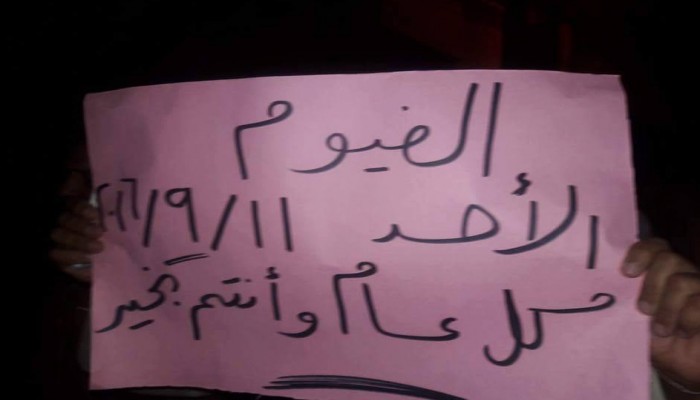 الفيوم
الأحد ١١/٩/٢٠١٦
كل عام وأنتم بخير